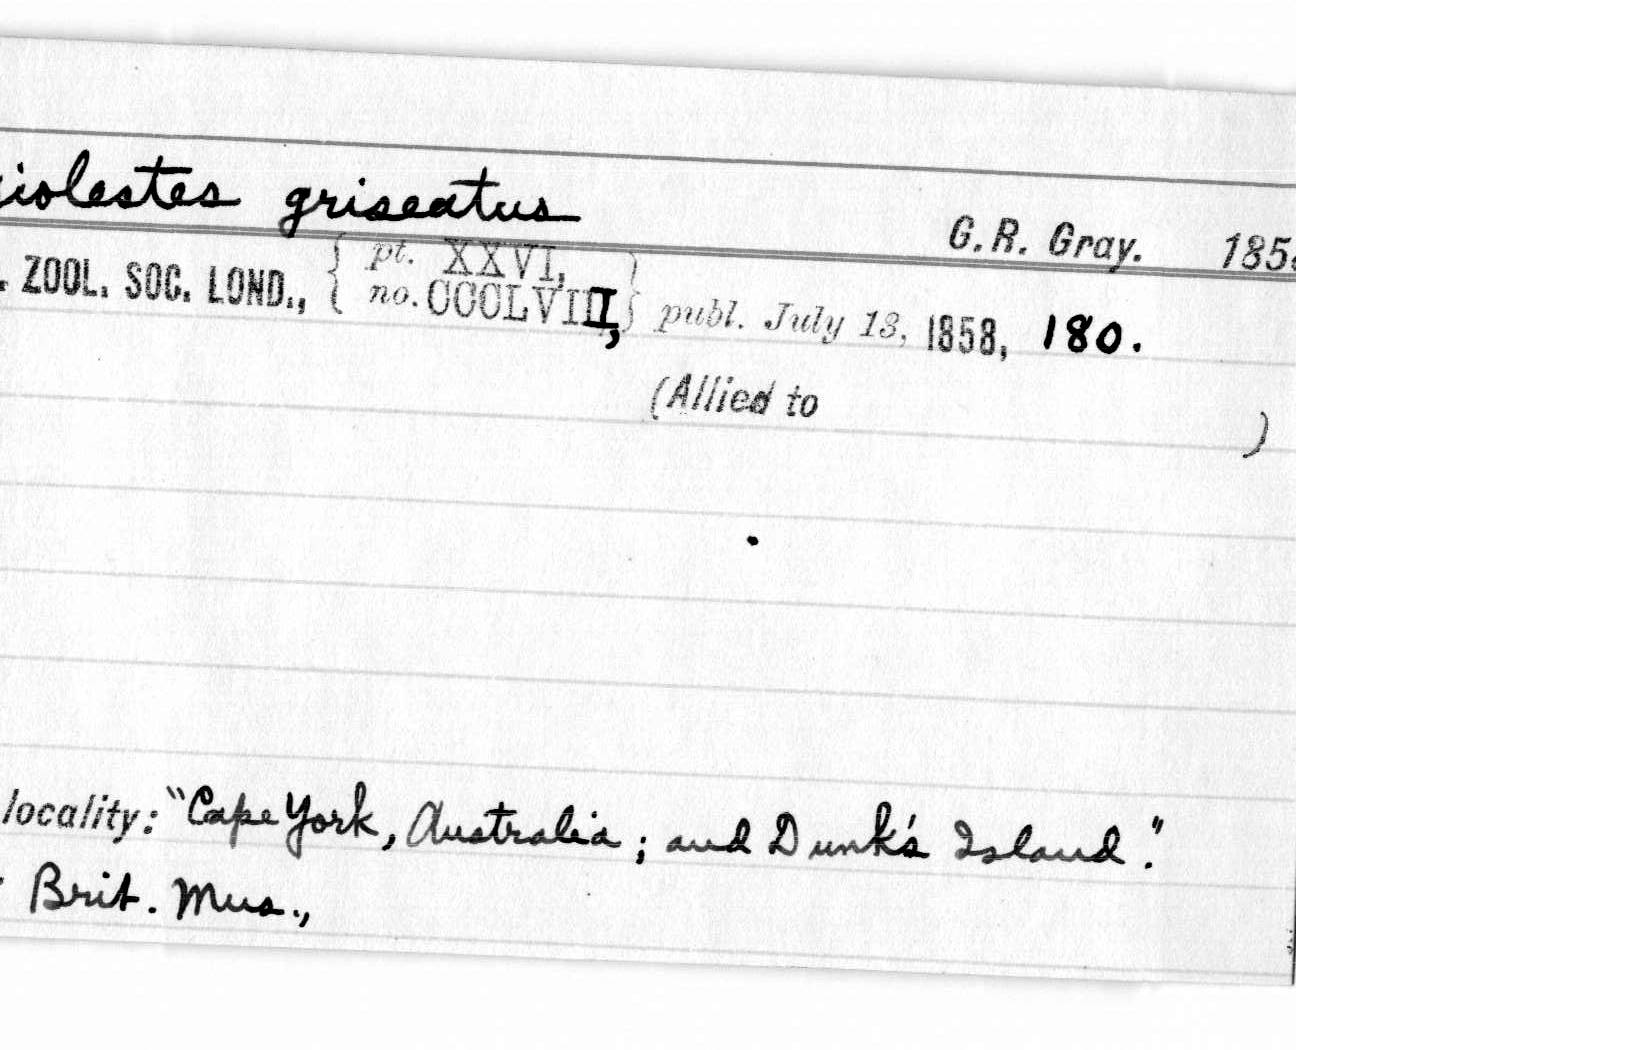 iolestes griseatus G.R. Gray. 185
. ZOOL. SOC. LOND., { pt. XXVI, no. CCCLVIII, } publ. July 13, 1858, 180.
(Allied to )
locality: "Cape York, Australia; and Dunk's Island."
Brit. Mus.,